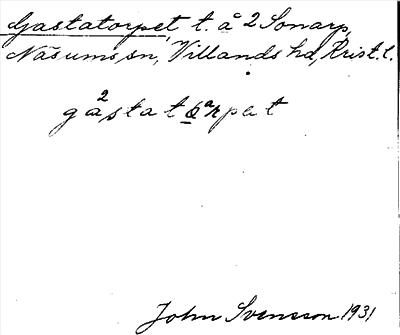 Gastatorpet t. å 2 Sonarp,
Näsums sn, Villands hd, Krist. l.
gastatorpet
John Svensson 1931